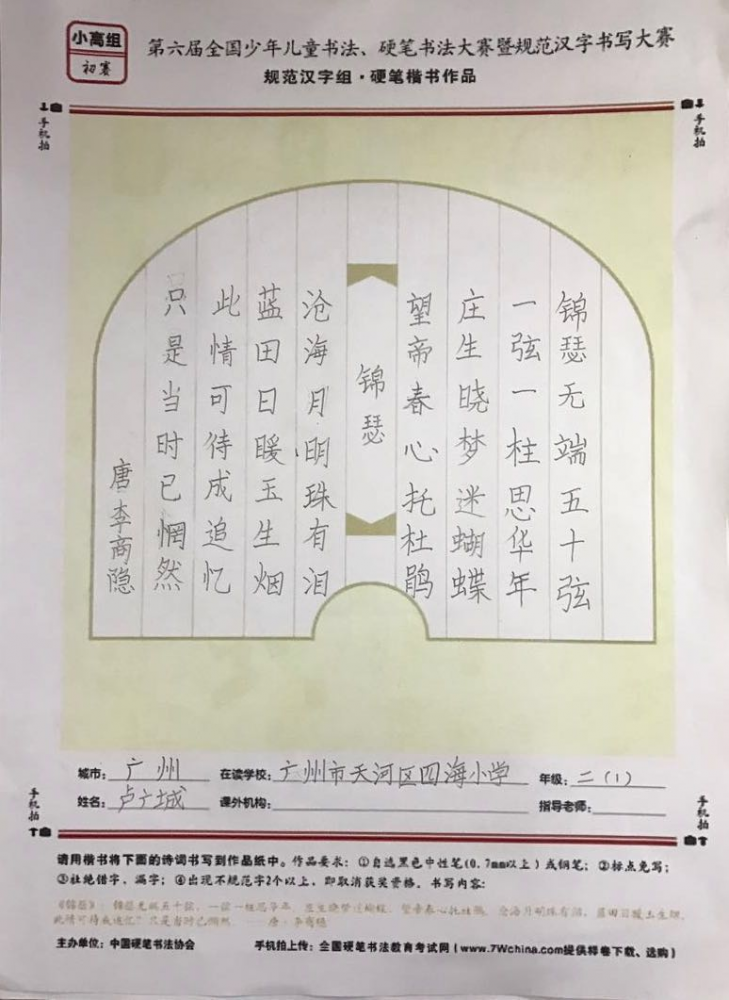 小高组
初赛
第六届全国少年儿童书法、硬笔书法大赛暨规范汉字书写大赛
规范汉字组·硬笔楷书作品
手机拍
手机拍
锦瑟无端五十弦
一弦一柱思华年
庄生晓梦迷蝴蝶
望帝春心托杜鹃
锦瑟
沧海月明珠有泪
蓝田日暖玉生烟
此情可待成追忆
只是当时已惘然
唐李商隐
城市：广州 在读学校：广州市天河区四海小学 年级：二（1）
姓名：卢广城 课外机构： 指导老师：
手机拍
手机拍
请用楷书将下面的诗词书写到作品纸中。作品要求：①自选黑色中性笔（0.7mm以上）或钢笔；②标点免写；
③杜绝错字、漏字；④出现不规范字2个以上，即取消获奖资格。书写内容：
《锦瑟》：锦瑟无端五十弦，一弦一柱思华年。庄生晓梦迷蝴蝶，望帝春心托杜鹃。沧海月明珠有泪，蓝田日暖玉生烟。
此情可待成追忆？只是当时已惘然。——唐·李商隐
主办单位：中国硬笔书法协会 手机拍上传：全国硬笔书法教育考试网（www.7Wchina.com提供样卷下载、选购）